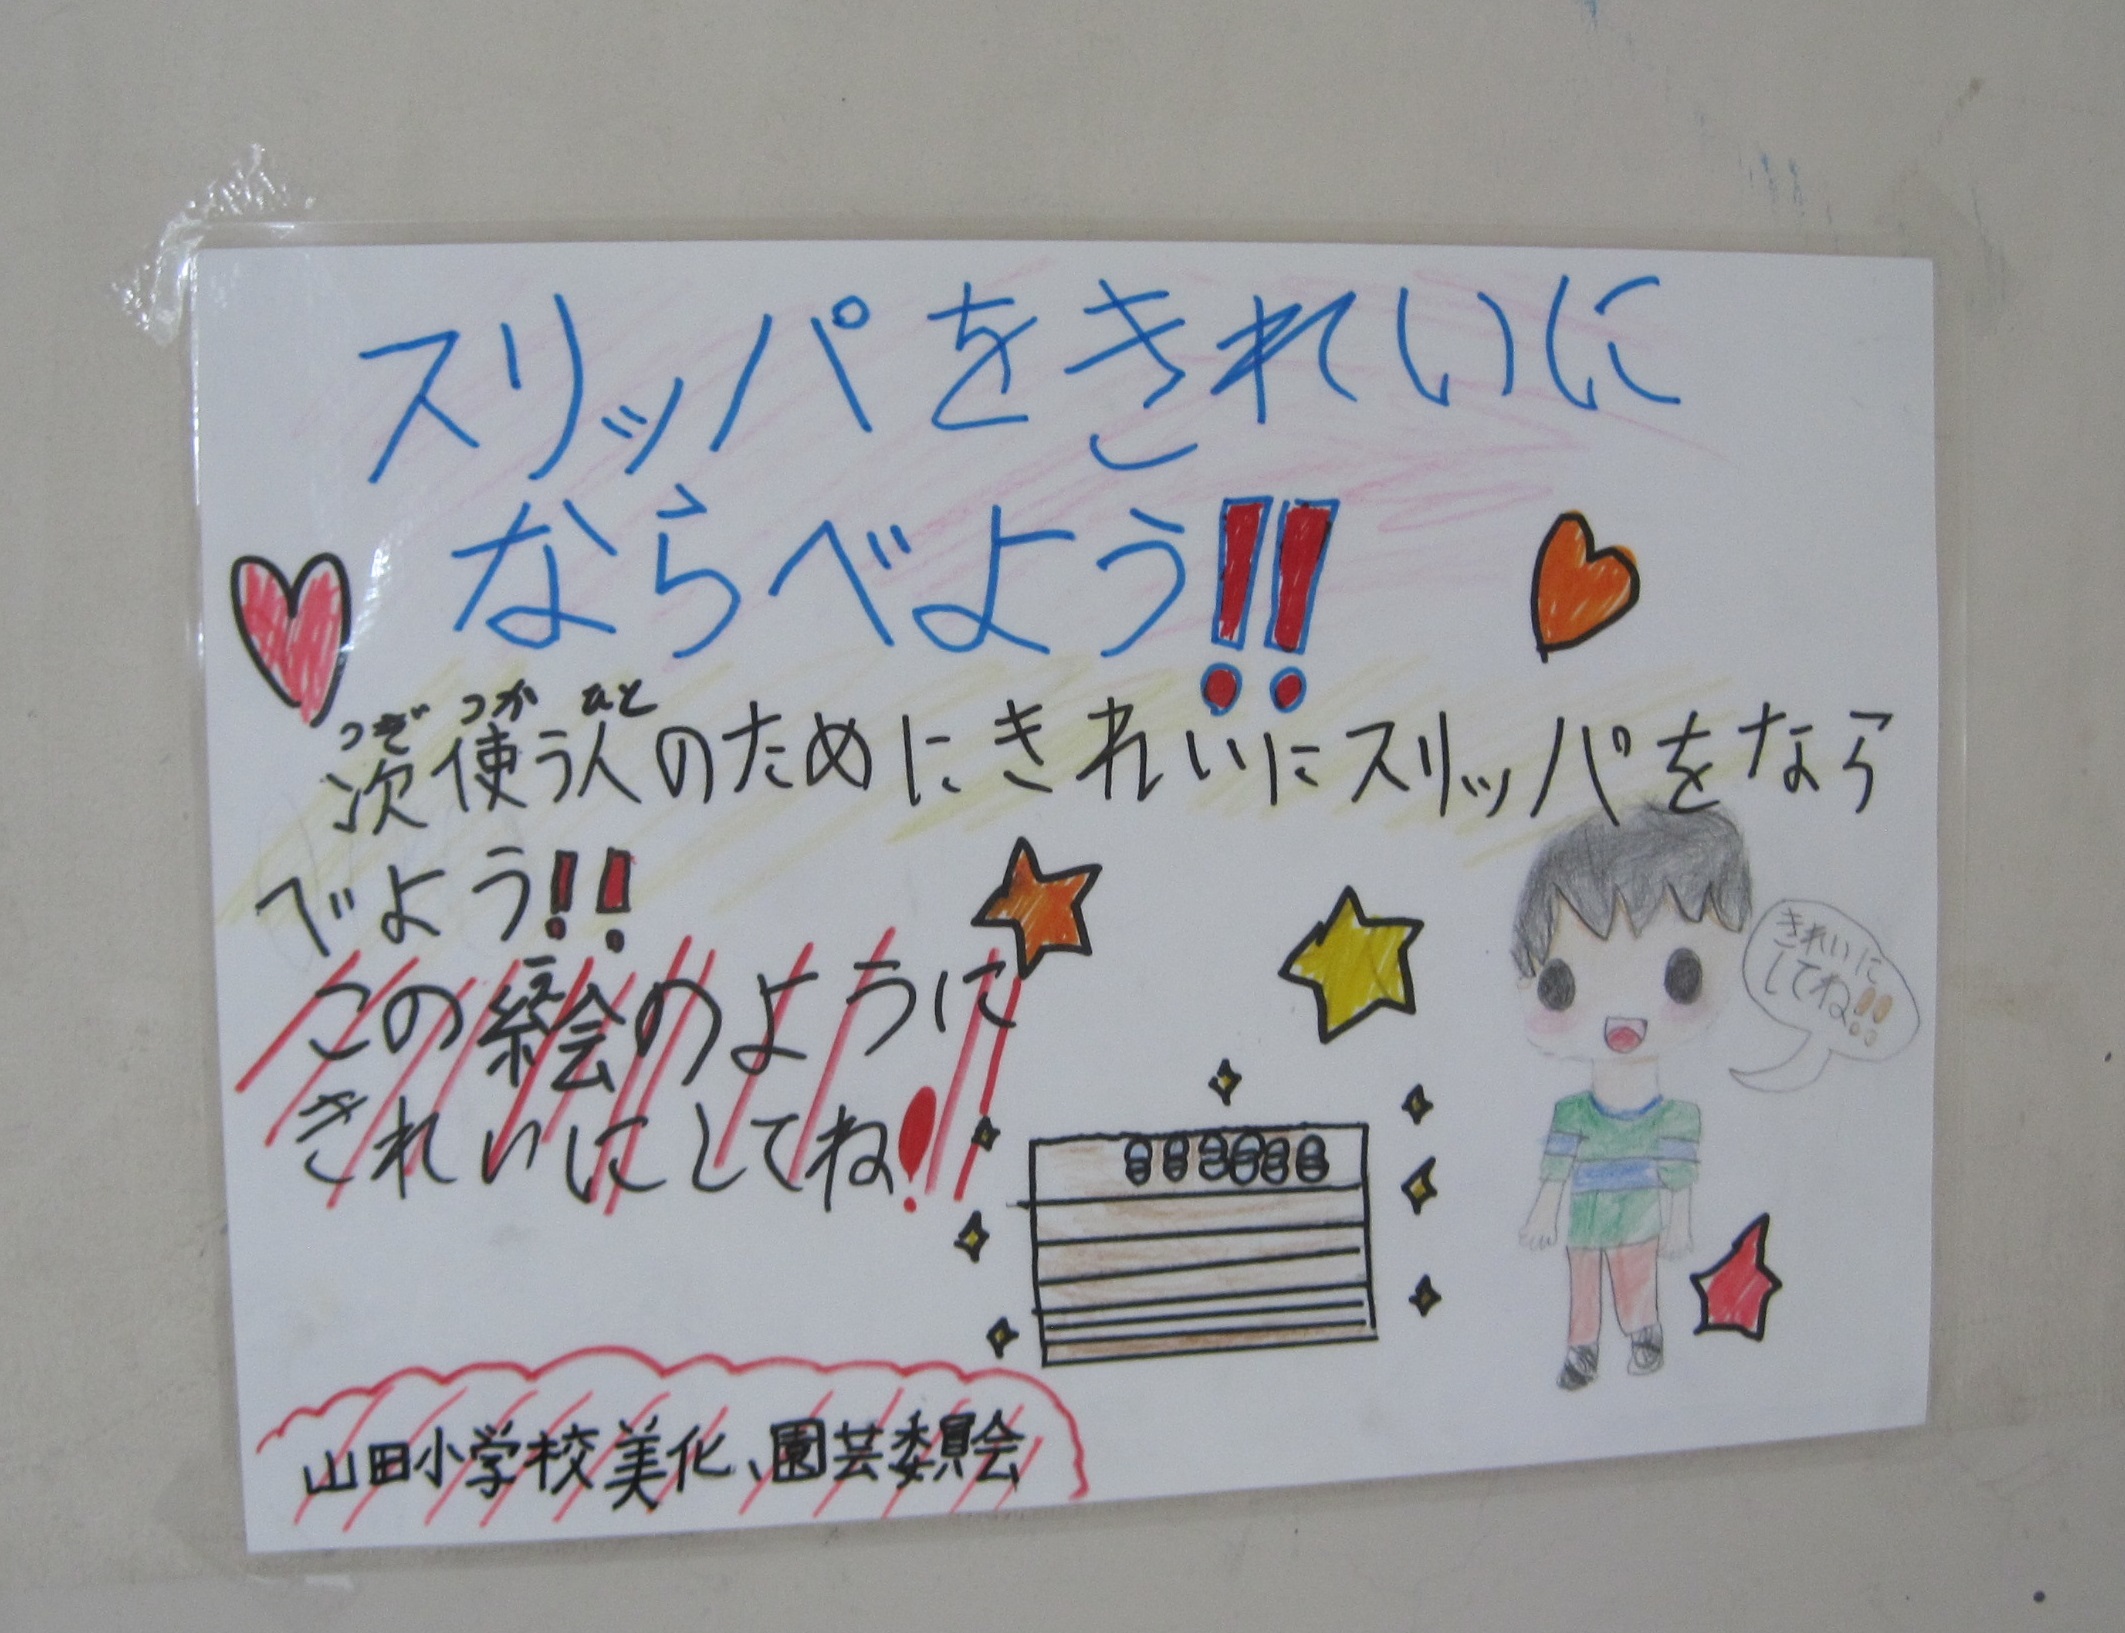 スリッパをきれいに
ならべよう!!
つぎ つか ひと
次使う人のためにきれいにスリッパをなら
べよう!!
この絵のように
きれいにしてね!
きれいに
してね!!
山田小学校美化、園芸委員会